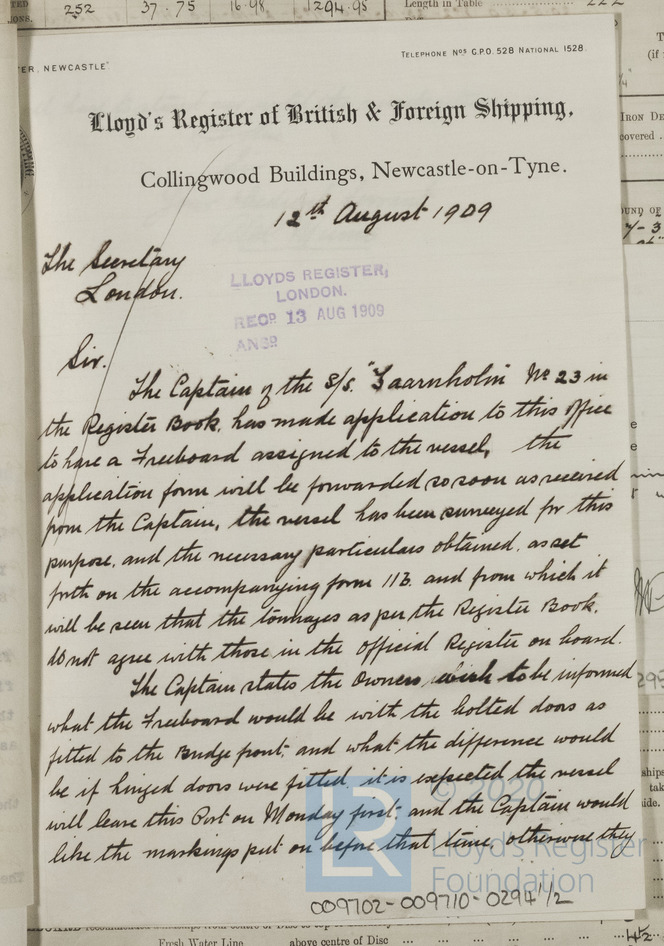 252 37.75 16.98 1294.95 Length in Table 222
TER, NEWCASTLE.
TELEPHONE Nos G.P.O. 528 NATIONAL 1528.
Lloyd's Register of British & Foreign Shipping,
Collingwood Buildings, Newcastle-on-Tyne.
12th August 1909
The Secretary
London.
LLOYDS REGISTER,
LONDON.
RECD 13 AUG 1909
ANSD
Sir.
The Captain of the S/S. "Gaarnholm" No 23 in
the Register Book, has made application to this Office
to have a Freeboard assigned to the vessel, the
application form will be forwarded so soon as received
from the Captain, the vessel has been surveyed for this
purpose, and the necessary particulars obtained, as set
forth on the accompanying form 11B. and from which it
will be seen that the tonnages as per the Register Book.
do not agree with those in the Official Register on board.
The Captain states the Owners wish to be informed
what the Freeboard would be with the bolted doors as
fitted to the Bridge front, and what the difference would
be if hinged doors were fitted, it is expected the vessel
will leave this Port on Monday first, and the Captain would
like the markings put on before that time, otherwise they
© 2020
Lloyd's Register
Foundation
009702-009710-0294 1/2
Fresh Water Line above centre of Disc